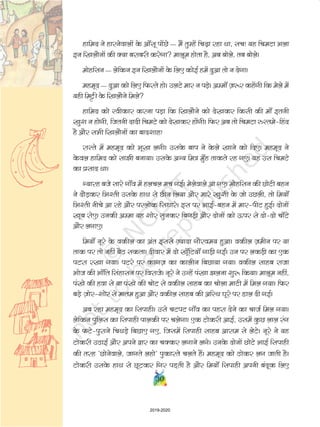 हामिद ने हारनेवालों के आँसू पोंछे — मैं तुम्हें चिढ़ा रहा था, सच! यह चिमटा भला
इन खिलौनों की क्या बराबरी करेगा? मालूम होता है, अब बोले, तब बोले।
मोहसिन — लेकिन इन खिलौनों के लिए कोई हमें दुआ तो न देगा।
महमूद — दुआ को लिए फिरते हो। उलटे मार न पड़े। अम्माँ ज़रूर कहेंगी कि मेले में
यही मिट्टी के खिलौने मिले?
हामिद को स्वीकार करना पड़ा कि खिलौनों को देखकर किसी की माँ इतनी
खुश न होंगी, जितनी दादी चिमटे को देखकर होंगी। फिर अब तो चिमटा रुस्तमे-हिंद
है और सभी खिलौनों का बादशाह!
रास्ते में महमूद को भूख लगी। उसके बाप ने केले खाने को दिए। महमूद ने
केवल हामिद को साझी बनाया। उसके अन्य मित्र मुँह ताकते रह गए। यह उस चिमटे
का प्रसाद था।
ग्यारह बजे सारे गाँव में हलचल मच गई। मेलेवाले आ गए। मोहसिन की छोटी बहन
ने दौड़कर भिश्ती उसके हाथ से छीन लिया और मारे खुशी के जो उछली, तो मियाँ
भिश्ती नीचे आ रहे और परलोक सिधारे। इस पर भाई-बहन में मार-पीट हुई। दोनों
खूब रोए। उनकी अम्मा यह शोर सुनकर बिगड़ी और दोनों को ऊपर से दो-दो चाँटे
और लगाए।
मियाँ नूरे के वकील का अंत इससे ज़्यादा गौरवमय हुआ। वकील ज़मीन पर या
ताक पर तो नहीं बैठ सकता। दीवार में दो खूँटियाँ गाड़ी गईं। उन पर लकड़ी का एक
पटरा रखा गया। पटरे पर कागज़ का कालीन बिछाया गया। वकील साहब राजा
भोज की भाँति सिंहासन पर विराजे। नूरे ने उन्हें पंखा झलना शुरू किया। मालूम नहीं,
पंखे की हवा से या पंखे की चोट से वकील साहब का चोला माटी में मिल गया। फिर
बड़े ज़ोर-शोर से मातम हुआ और वकील साहब की अस्थि घूरे पर डाल दी गई।
अब रहा महमूद का सिपाही। उसे चटपट गाँव का पहरा देने का चार्ज मिल गया।
लेकिन पुलिस का सिपाही पालकी पर चलेगा। एक टोकरी आई, उसमें कुछ लाल रंग
के फटे-पुराने चिथड़े बिछाए गए, जिसमें सिपाही साहब आराम से लेटे। नूरे ने यह
टोकरी उठाई और अपने द्वार का चक्कर लगाने लगे। उनके दोनों छोटे भाई सिपाही
की तरह 'छोनेवाले, जागते लहो' पुकारते चलते हैं। महमूद को ठोकर लग जाती है।
टोकरी उसके हाथ से छूटकर गिर पड़ती है और मियाँ सिपाही अपनी बंदूक लिए
2019-2020